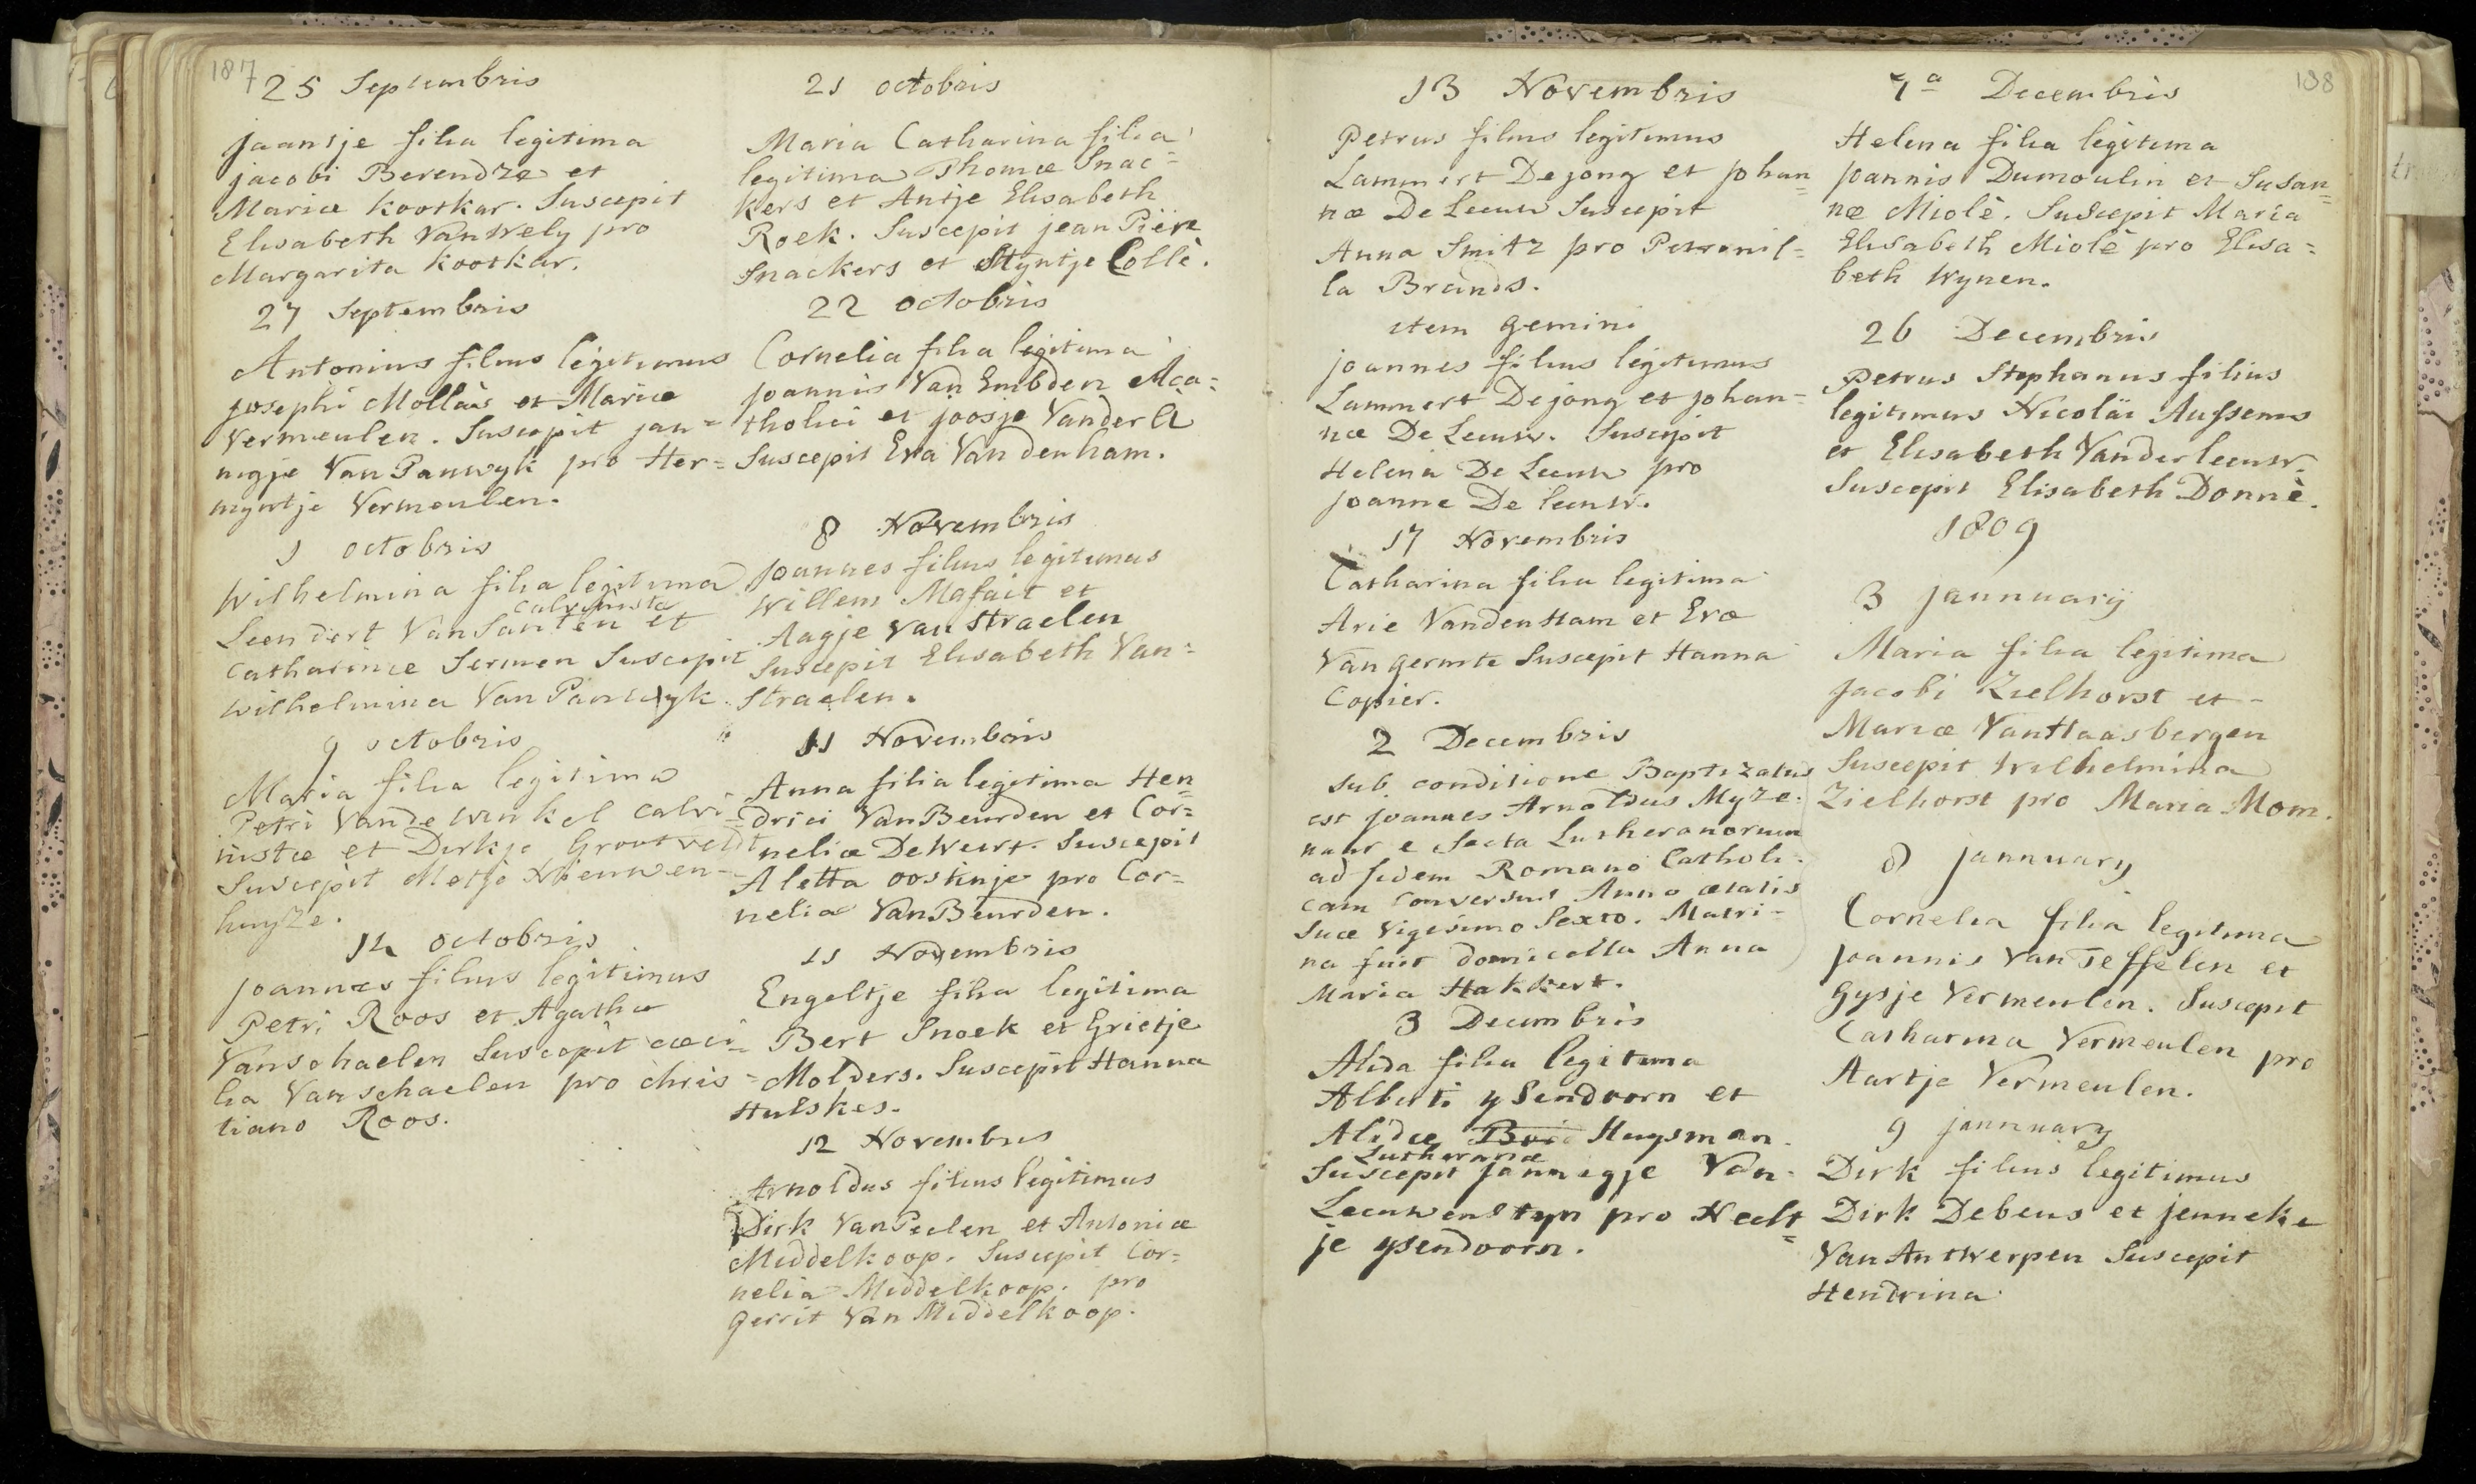 187
25 Septembris
Jaantje filia legitima
jacobi Berendze et
Mariæ Kootkar. Suscepit
Elisabeth Van Wely pro
Margarita Kootkar.
27 Septembris
Antonius filius legitimus
josephi Mollais et Mariæ
Vermeulen. Suscepit jan=
nigje Van Panwyk pro Her=
myntje Vermeulen.
1 octobris
Wilhelmina filia legitima
Calvinista
Leendert Van Santen et
Catharinæ Sermen Suscepit
Wilhelmina Van Panwyk.
9 octobris
Maria filia legitima
Petri Vande Winkel Calvi=
nistæ et Dirkje Grootveldt
Suscepit Metje Nieuwen-
huyze.
12 octobris
joannes filius legitimus
Petri Roos et Agathæ
Vanschaelen Suscepit cæci=
lia Vanschaelen pro chris=
tiano Roos.
21 octobris
Maria Catharina filia
legitima Thomæ Snac=
kers et Antje Elisabeth
Roek. Suscepit jean Piër
Snackers et Styntje Collè.
22 octobris
Cornelia filia legitima
joannis Van Embden Aca=
tholici et joosje Vander Li
Suscepit Eva Van den ham.
8 Novembris
joannes filius legitimus
Willem Mafait et
Aagje Van Straelen
Suscepit Elisabeth Van=
Straelen.
11 Novembris
Anna filia legitima Hen=
drici Van Beurden et Cor=
neliæ De Weert. Suscepit
Aletta oostinje pro Cor=
nelia Van Beurden.
11 Novembris
Engeltje filia legitima
Bert Snoek et Grietje
Molders. Suscepit Hanna
Hulskes.
12 Novembris
Arnoldus filius legitimus
Dirk Van Peelen et Antoniæ
Middelkoop. Suscepit Cor=
nelia Middelkoop. pro
gerrit Van Middelkoop.
188
13 Novembris
Petrus filius legitimus
Lammert De jong et johan=
næ De Leeuw Suscepit
Anna Smitz pro Petronil=
la Brands.
item gemini
joannes filius legitimus
Lammert De jong et johan=
næ De Leeuw. Suscepit
Helena De Leeuw pro
joanne De leeuw.
17 Novembris
Catharina filia legitima
Arie Vanden Ham et Evæ
Van germte Suscepit Hanna
Copier.
2 Decembris
Sub conditione Baptizatus
est joannes Arnoldus Myze=
naar e Secta Lutheranorum
ad fidem Romano Catholi=
cam Conversus Anno ætatis
Suæ Vigesimo Sexto. Matri=
na fuit domicella Anna
Maria Hakkert.
3 Decembris
Alida filia legitima
Alberti ysendoorn et
Alidæ Huysman.
Lutheranæ
Suscepit Jannegje Van=
Leeuwenstyn pro Neelt=
je ysendoorn.
7ª Decembris
Helena filia legitima
joannis Dumoulin et Susan=
næ Miolè. Suscepit Maria
Elisabeth Miolè pro Elisa=
beth Wynen.
26 Decembris
Petrus Stephanus filius
legitimus Nicolaï Aussems
et Elisabeth Vanderleeuw.
Suscepit Elisabeth Donnè.
1809
3 jannuarÿ
Maria filia legitima
jacobi Zielhorst et -
Mariæ Van Haasbergen
Suscepit Wilhelmina
Zielhorst pro Maria Mom.
8 jannuary
Cornelia filia legitima
joannis Van Teffelen et
Gysje Vermeulen. Suscepit
Catharina Vermeulen pro
Aartje Vermeulen.
9 jannuary
Dirk filius legitimus
Dirk Debeus et jenneke
Van Antwerpen Suscepit
Hendrina